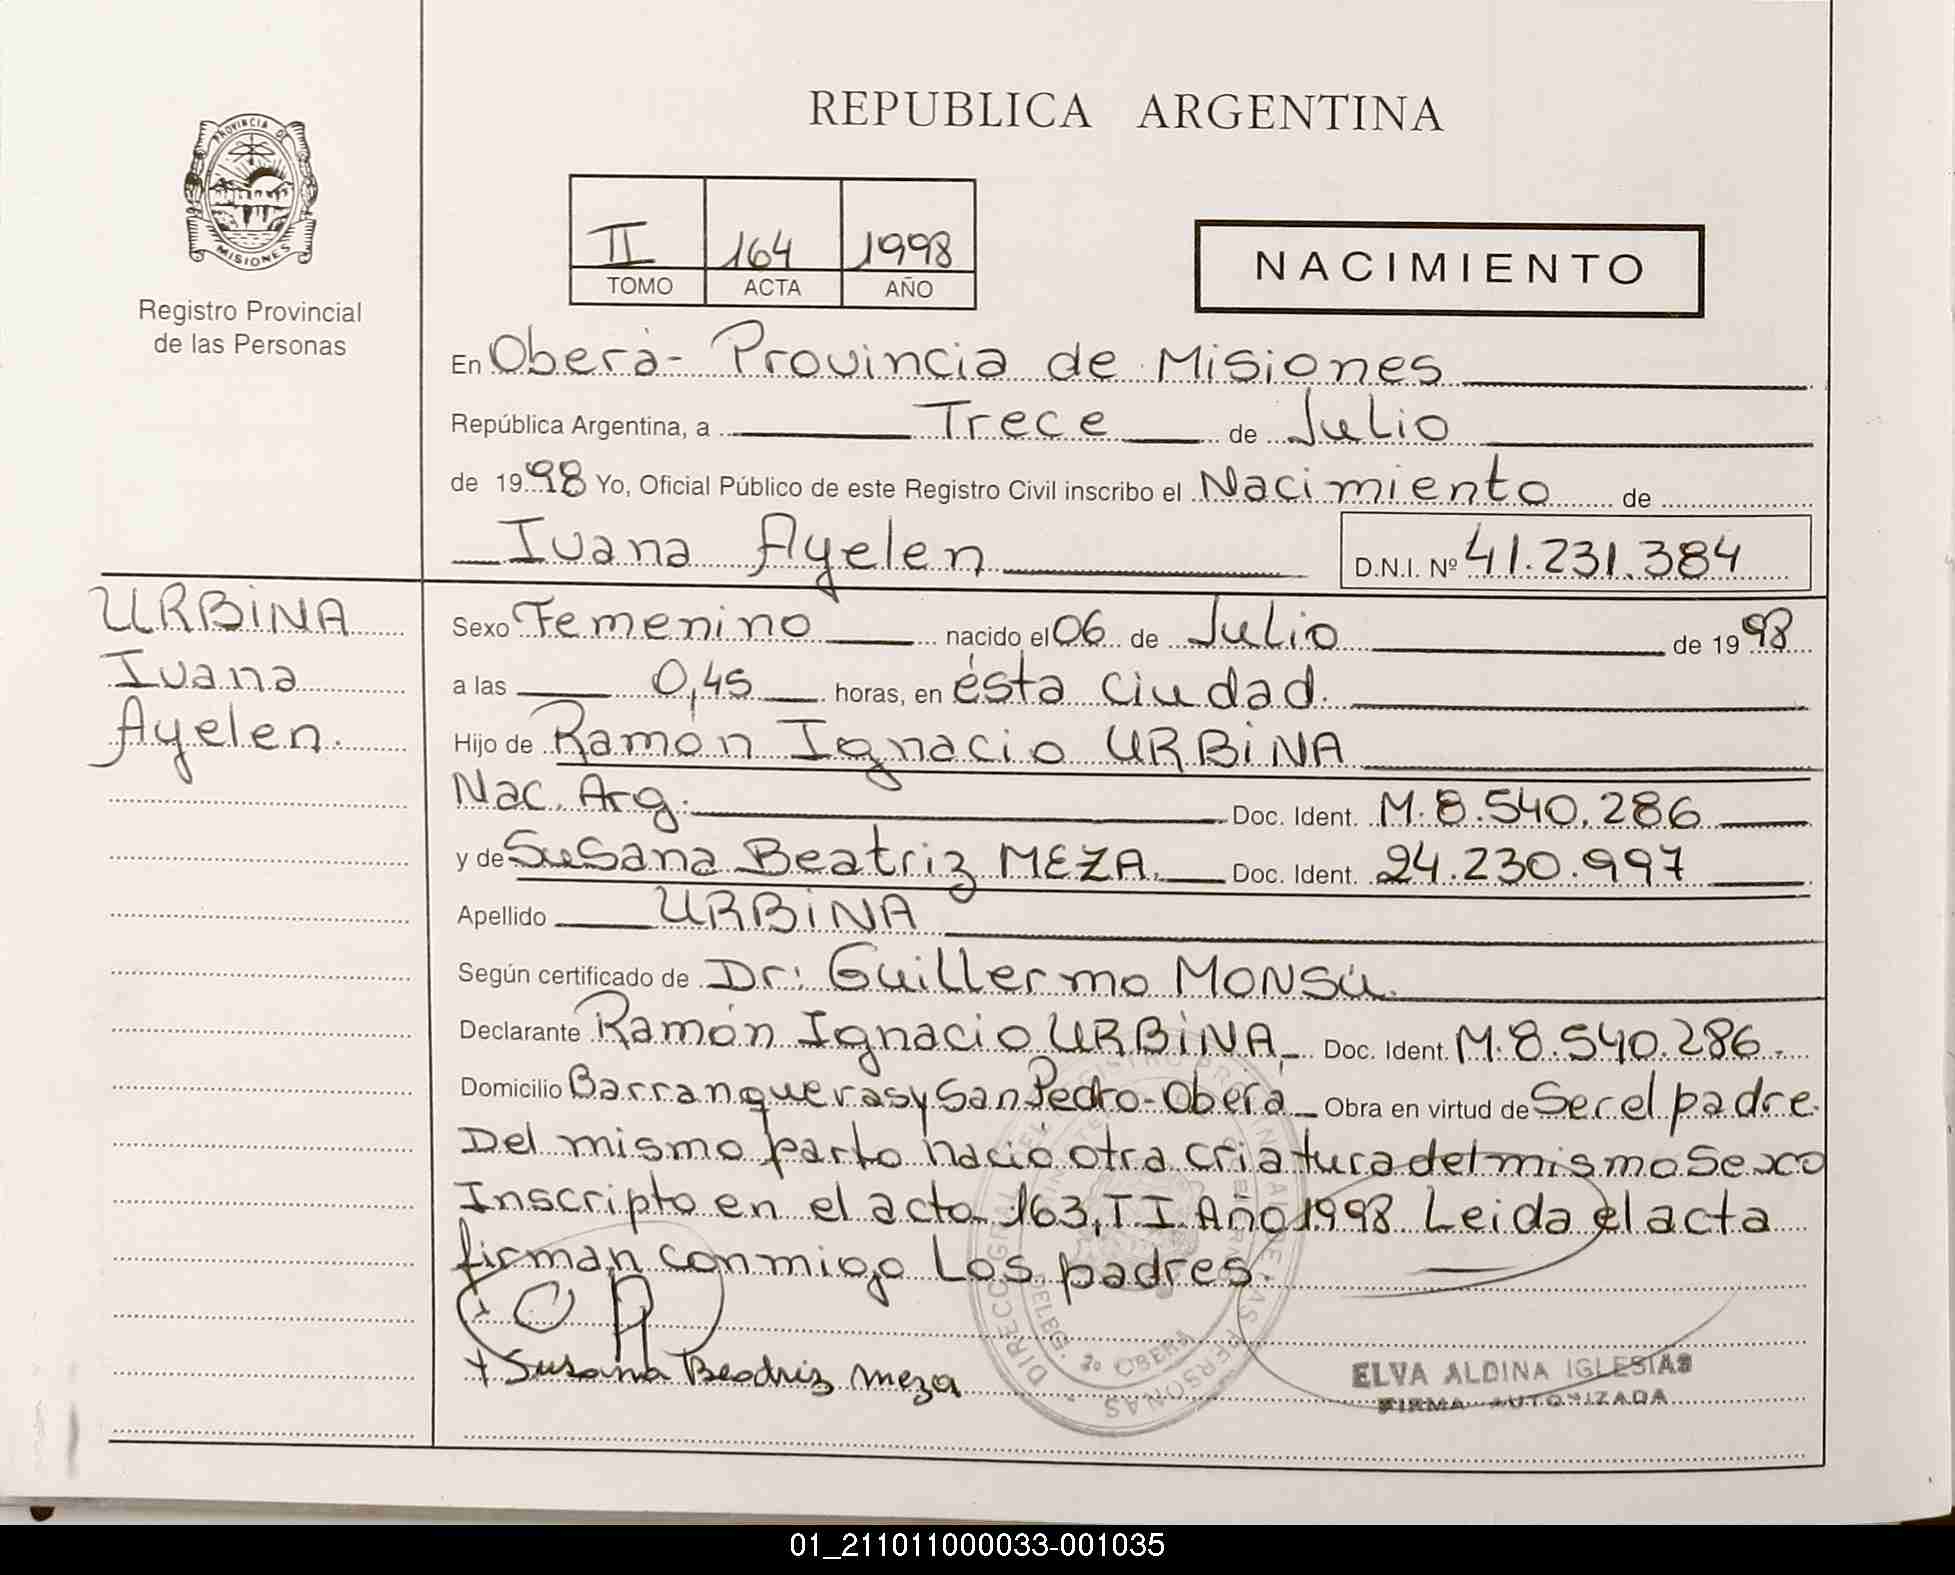 PROVINCIA DE
MISIONES
Registro Provincial
de las Personas
REPUBLICA ARGENTINA
II 164 1998
TOMO ACTA AÑO
NACIMIENTO
En Oberá- Provincia de Misiones
República Argentina, a Trece de Julio
de 1998 Yo, Oficial Público de este Registro Civil inscribo el Nacimiento de
Ivana Ayelen D.N.I. Nº 41.231.384
URBINA
Ivana
Ayelen.
Sexo Femenino nacido el 06 de Julio de 1998
a las 0,45 horas, en ésta ciudad.
Hijo de Ramón Ignacio URBINA
Nac. Arg. Doc. Ident. M. 8.540.286
y de Susana Beatriz MEZA. Doc. Ident. 24.230.997
Apellido URBINA
Según certificado de Dr: Guillermo MONSÚ.
Declarante Ramón Ignacio URBINA Doc. Ident. M. 8.540.286.
Domicilio Barranqueras y San Pedro-Oberá Obra en virtud de Ser el padre.
Del mismo parto nació otra criatura del mismo Sexo
Inscripto en el acta 163, T I. Año 1998 Leida el acta
firman conmigo Los padres.
+ Susana Beadriz meza
ELVA ALDINA IGLESIAS
FIRMA AUTORIZADA
01_211011000033-001035